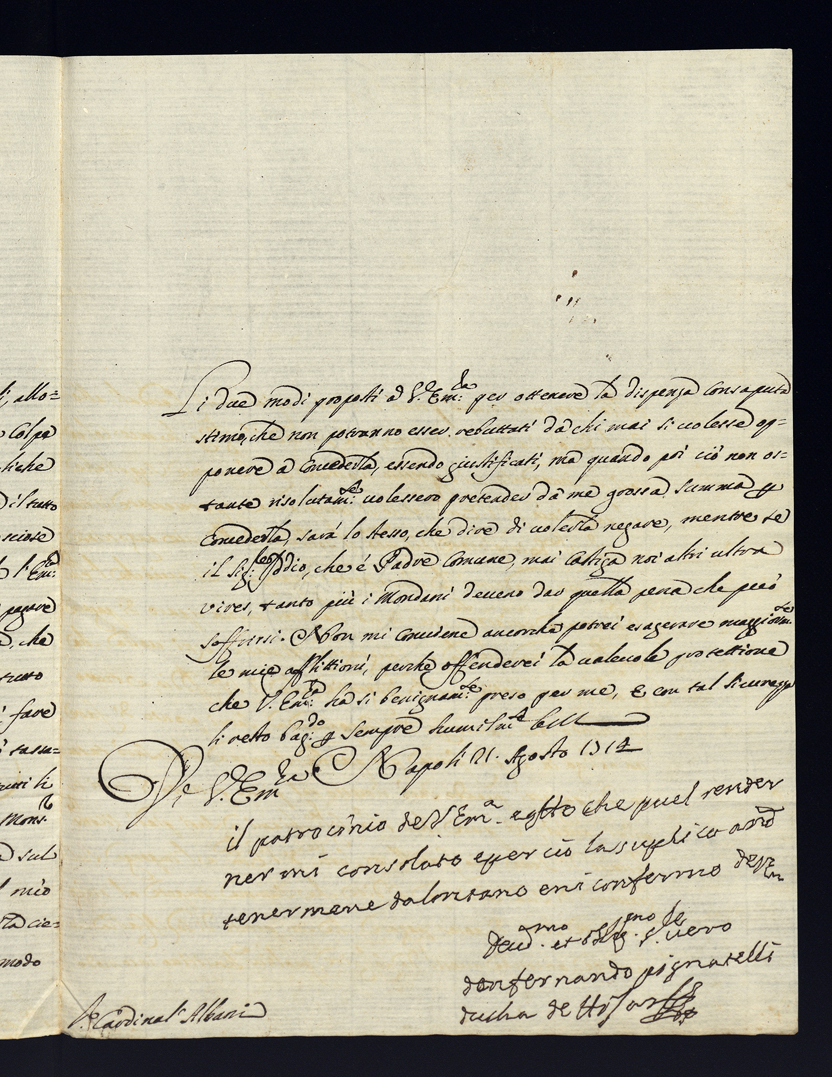 li, allo=
Colpa
il tutto
pagare
, che
tutto
fare
Mons.
sul
mio
modo
Li due modi proposti à V.Em:za per ottenere la dispenza Consaputa
stimo, che non potranno esser rebuttati da chi mai si volesse op=
ponere a Concederla, essendo giustificati, ma quando poi ciò non os=
tante risolutam:te volessero pretender da me grossa summa p
Concederla, sarà lo stesso, che dire di volerla negare, mentre se
il Sig:re Iddio, che è Padre Comune, mai Castiga noi altri ultra
vires, tanto più i Mondani deveno dar quella pena che può
soffrirsi. Non mi Conviene ancorche potrei esagerare maggiorm:te
le mie afflittioni, perche offenderei la valevole protettione
che V.Em:za hà si benignam:te preso per me, e con tal sicurezza
li resto bag:do p sempre humilm:te
De V.Em:za Napoli 21. Agosto 1714
il patrocinio de V Em:a e quello che puel render
nermi consolato e per ciò la suplico
tenermene dalontano e mi confermo
Deud:amo et obblig:mo Se vero
don fernando pignatelli
ducha de
Sr Cardinal Albani